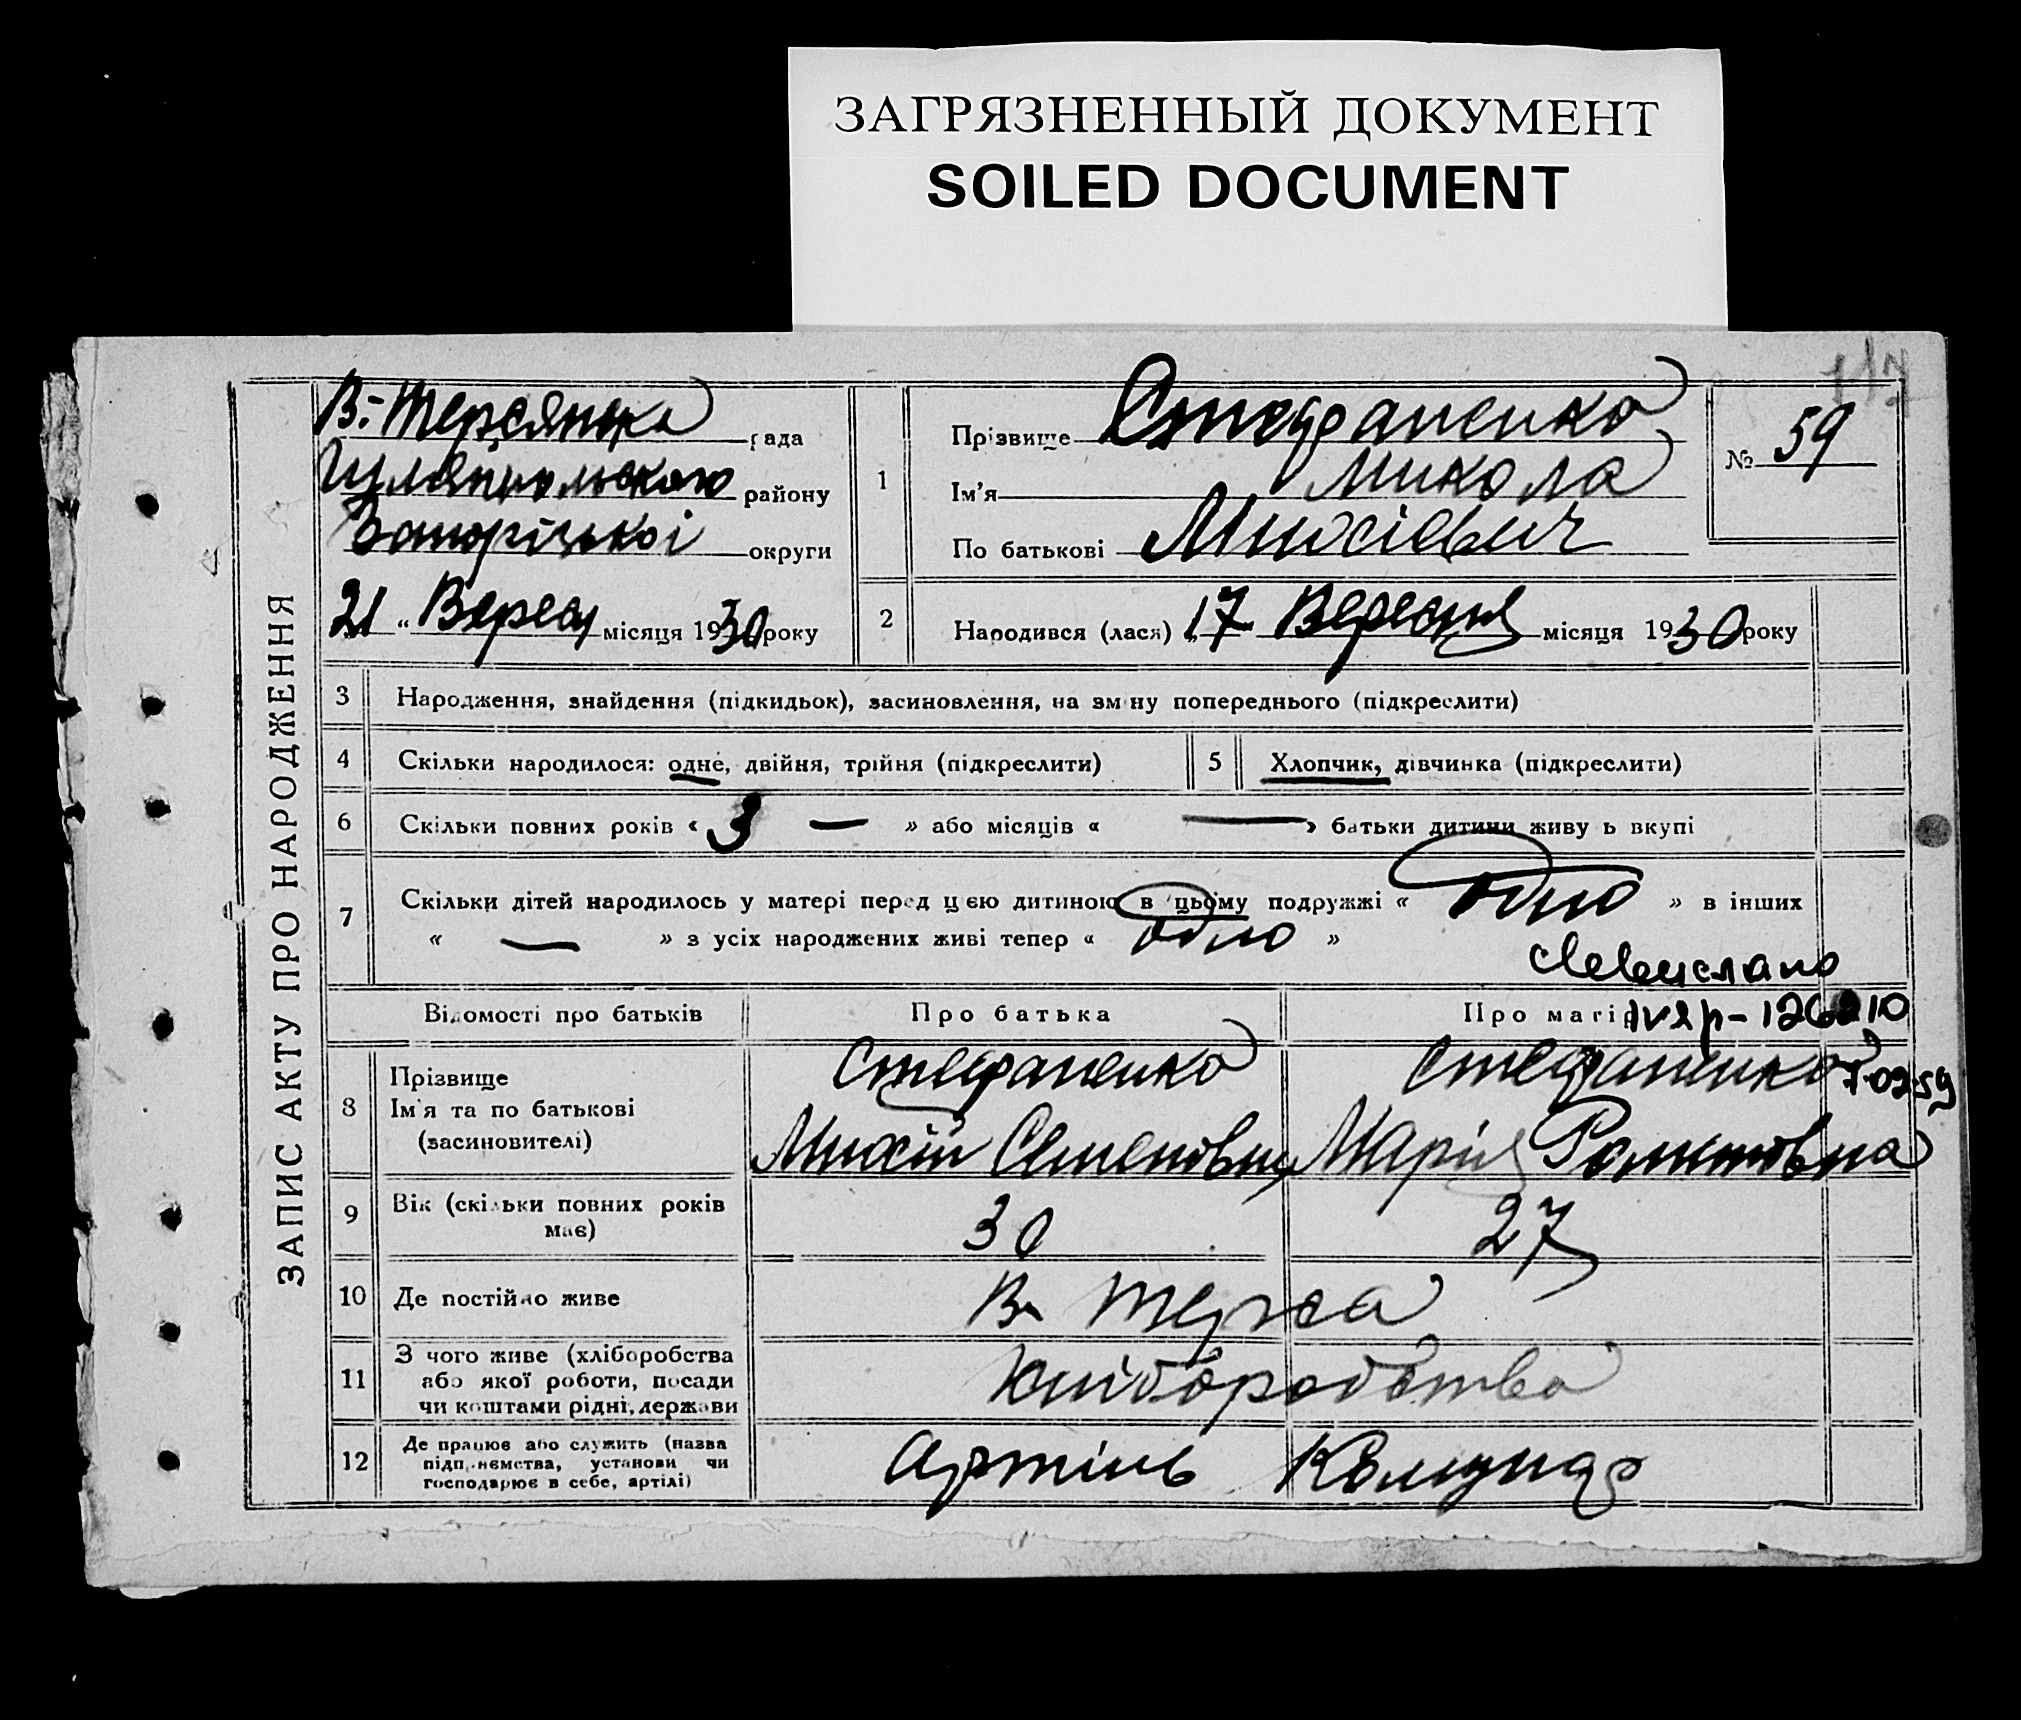 ЗАГРЯЗНЕННЫЙ ДОКУМЕНТ
SOILED DOCUMENT
117
ЗАПИС АКТУ ПРО НАРОДЖЕННЯ
В.-Терсянська рада
Гуляйпольского району
Запоріцької округи
21 " Верес місяця 1930 року
1
Прізвище Стефаненко
Ім'я Микола
По батькові Михієвич
№ 59
2 Народився (лася) " 17 Вересня місяця 1930 року
3 Народження, знайдення (підкидьок), засиновлення, на зміну попереднього (підкреслити)
4 Скільки народилося: одне, двійня, трійня (підкреслити)
5 Хлопчик, дівчинка (підкреслити)
6 Скільки повних років « 3 — » або місяців « — » батьки дитини живуть вкупі
7 Скільки дітей народилось у матері перед цією дитиною в цьому подружжі « одно » в інших
« — » з усіх народжених живі тепер « одно »
126210
7.02.59
Відомості про батьків Про батька Про матір
8 Прізвище
Ім'я та по батькові
(засиновителі)
Стефаненко
Михій Семенович
Стефаненко
Марія
9 Вік (скільки повних років
має)
30 27
10 Де постійно живе
В. Терса
11 З чого живе (хліборобства
або якої роботи, посади
чи коштами рідні, держави
Хліборобства
12 Де працює або служить (назва
підприємства, установи чи
господарює в себе, артілі)
Артіль Комунар